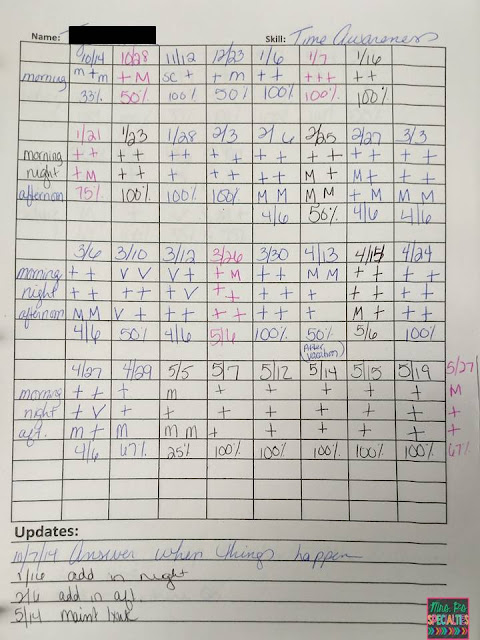 Name: Skill: Time Awareness
10/14 10/28 11/12 12/23 1/6 1/7 1/16
morning m + m + M sc + + m + + + + + + +
33% 50% 100% 50% 100% 100% 100%
1/21 1/23 1/28 2/3 2/6 2/25 2/27 3/3
morning + + + + + + + + + + + + + + + +
night + M + + + + + + + M + M + + +
afternoon 75% 100% 100% 100% M M M M + M M M
4/6 50% 4/6 4/6
3/6 3/10 3/12 3/26 3/30 4/13 4/15 4/24
morning + + V V V + + M + + M M + + + +
night + + + + + V + + + + + + + + +
afternoon M M V + + + + + + + + M + + +
4/6 50% 4/6 5/6 100% 50% 5/6 100%
(after vacation)
4/27 4/29 5/5 5/7 5/12 5/14 5/15 5/19 5/27
morning + + + m + + + + + M
night + V + + + + + + + +
aft. m + M M M + + + + + +
4/6 67% 25% 100% 100% 100% 100% 100% 67%
Updates:
10/7/14 Answer when things happen
1/16 add in night
2/6 add in aft.
5/14 maint
Mrs. P's
SPECIALTIES